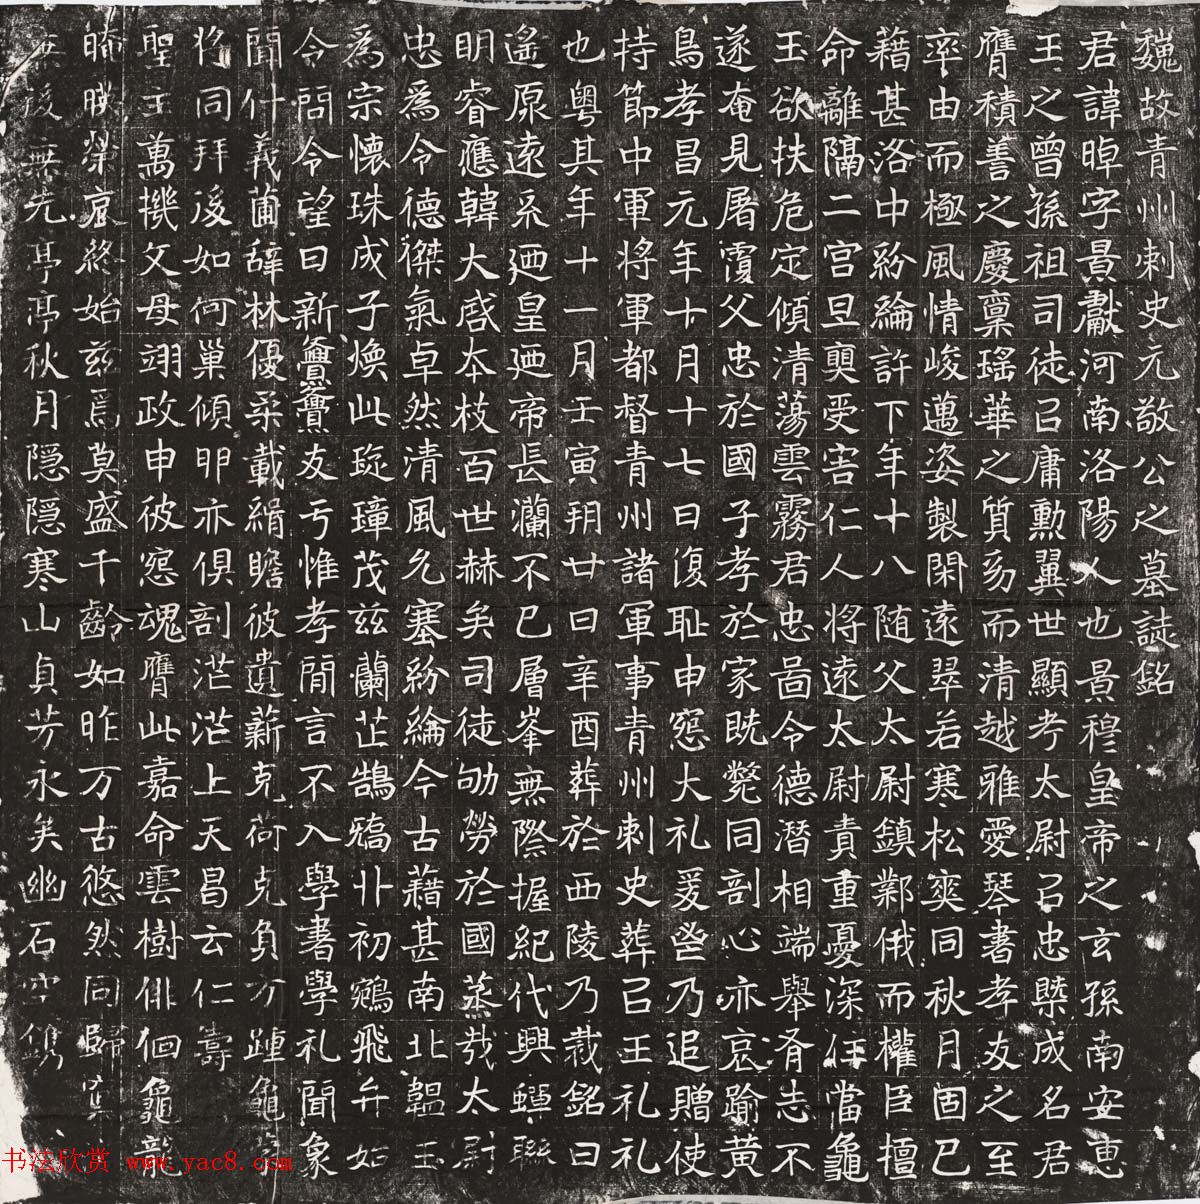 魏故青州刺史元敬公之墓誌銘
君諱晫字景獻河南洛陽人也景穆皇帝之玄孫南安惠
王之曾孫祖司徒召庸勳翼世顯考太尉召忠槩成名君
膺積善之慶稟瑤華之質幼而清越雅愛琴書孝友之至
率由而極風情峻邁姿製閑遠翠若寒松奭同秋月固已
藉甚洛中紛綸許下年十八随父太尉鎮鄴俄而權臣擅
命離隔二宮旦奭受害仁人將遠太尉責重憂深任當龜
玉欲扶危定傾清蕩雲霧君忠啚令德潛相端舉胥志不
遂奄見屠覆父忠於國子孝於家既斃同剖心亦哀踰黃
鳥孝昌元年十月十七日復耻申寃大礼爰岀乃追贈使
持節中軍將軍都督青州諸軍事青州刺史葬召王礼礼
也粵其年十一月壬寅朔廿日辛酉葬於西陵乃裁銘曰
遙原遠系廼皇廼帝長瀾不已層峯無際握紀代興蟬聯
明睿應韓大啓本枝百世赫矣司徒劬勞於國蒸哉太尉
忠爲令德傑氣卓然清風允塞紛綸今古藉甚南北韞王
爲宗懷珠成子煥此琁璋茂兹蘭芷鵠鷮廾初鵷飛弁始
令問令望日新亹亹友亏惟孝閒言不入學書學礼聞象
聞什義莆辭林優柔載緝瞻彼遺薪克荷克負方踵龜
將同拜後如何巢傾卵亦俱剖茫茫上天昌云仁壽
聖主萬機文母翊政申彼寃魂膺此嘉命雲樹俳佪龜龍
晞暎榮哀終始兹焉莫盛千齡如昨万古悠然同歸
無後無先亭亭秋月隱隱寒山貞芳永矣幽石空鐫
书法欣赏 www.yac8.com